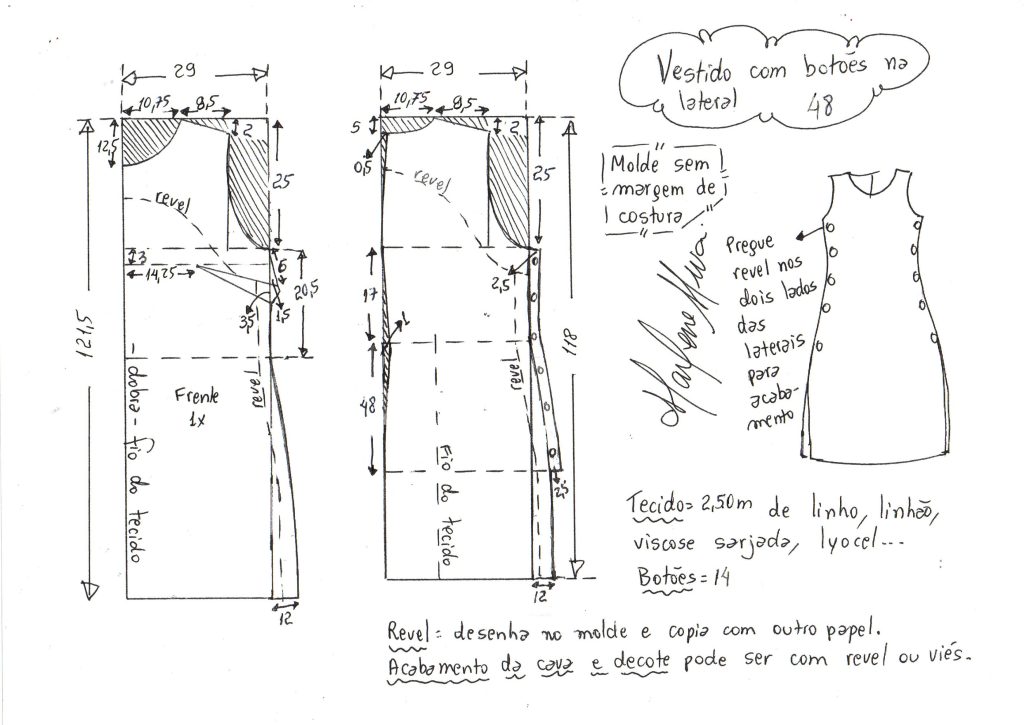 Vestido com botões na
lateral 48
Molde sem
margem de
costura
29
10,75 8,5
12,5
2
25
revel
3
14,25
6
3,5
1,5
20,5
121,5
dobra - fio do tecido
Frente
1x
revel
12
29
10,75 8,5
5
2
0,5
25
revel
2,5
17
1
48
revel
Fio do tecido
2,5
118
12
Pregue
revel nos
dois lados
das
laterais
para
acaba-
mento
Tecido= 2,50m de linho, linhão,
viscose sarjada, lyocel...
Botões = 14
Revel= desenha no molde e copia com outro papel.
Acabamento da cava e decote pode ser com revel ou viés.